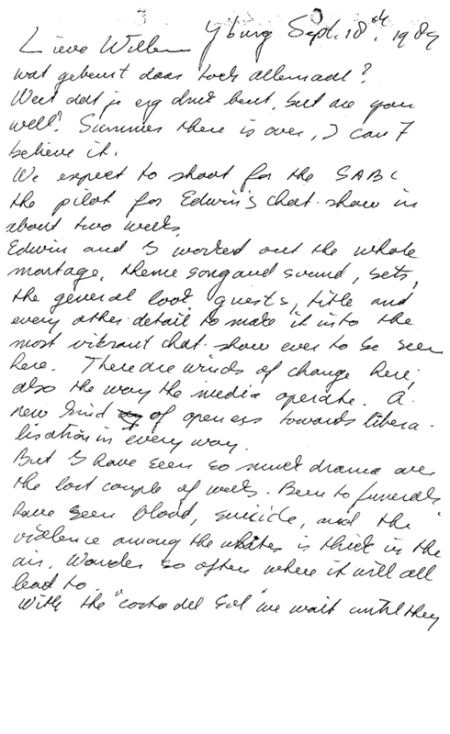 3
Lieve Willem Y'burg Sept. 18th, 1989
wat gebeurt daar toch allemaal?
Weet dat je erg druk bent, but are you
well? Summer there is over, I can't
believe it.
We expect to shoot for the SABC
the pilot for Edwin's chat-show in
about two weeks.
Edwin and I worked out the whole
montage, theme song and sound, sets,
the general look, guests, title and
every other detail to make it into the
most vibrant chat-show ever to be seen
here. There are winds of change here,
also the way the media operate. A
new kind of openess towards libera-
lisation in every way.
But I have seen so much drama over
the last couple of weeks. Been to funerals
have seen blood, suicide, and the
violence among the whites is thick in the
air. Wonder so often where it will all
lead to.
With the "costa del Sol" we wait until they